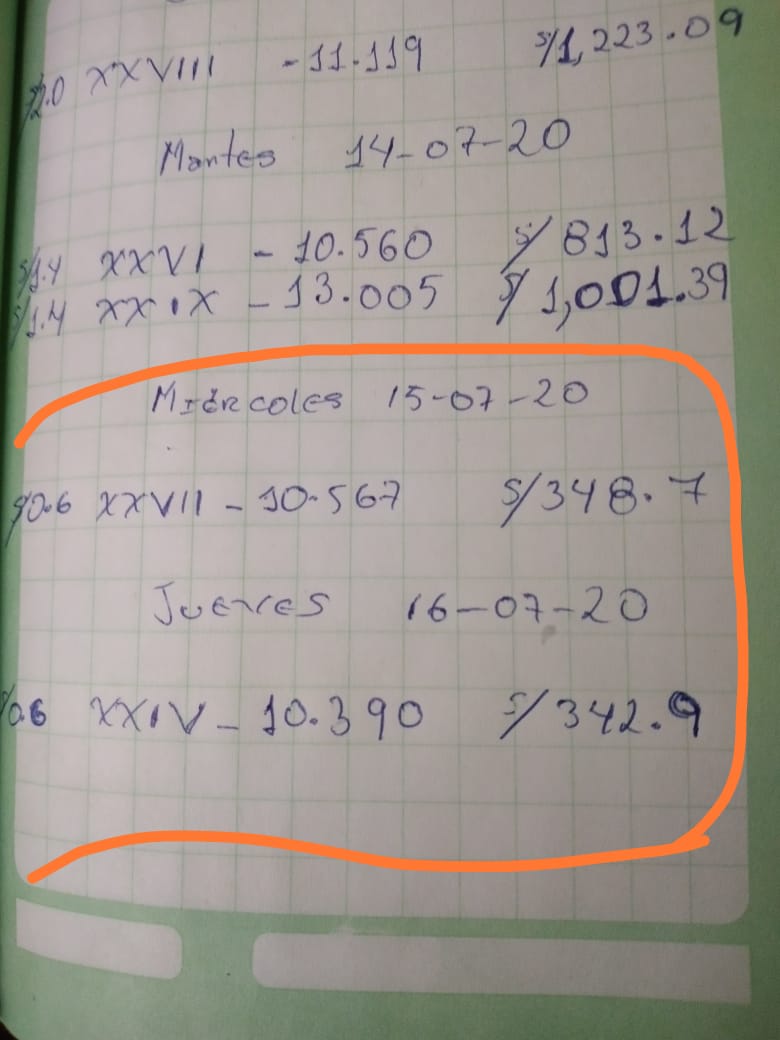 S/2.0 XXVIII - 11.119 S/1,223.09
Martes 14-07-20
S/1.4 XXVI - 10.560 S/ 813.12
S/1.4 XXIX - 13.005 S/ 1,001.39
Miércoles 15-07-20
S/0.6 XXVII - 10.567 S/348.7
Jueves 16-07-20
S/0.6 XXIV - 10.390 S/342.9